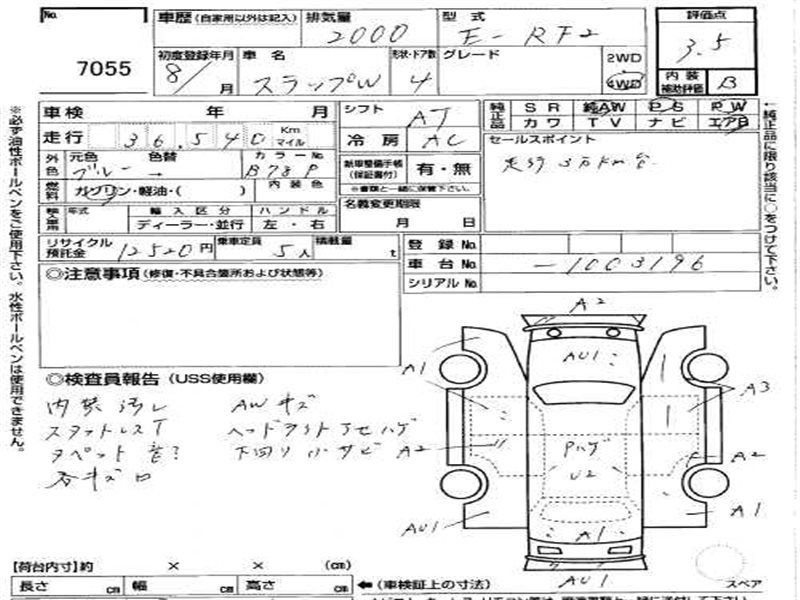 No. 7055
車歴 (自家用以外は記入) 排気量 2000 型式 E-RF2
評価点 3.5
初度登録年月 8/ 月 車名 ステップW 形状・ドア数 4 グレード 2WD 4WD
内装補助評価 B
車検 年 月 シフト AT
純正品 SR 純AW PS PW
カワ TV ナビ エアB
走行 36,540 Km マイル 冷房 AC
セールスポイント
走行3万km台
外色 元色 ブルー 色替 → カラーNo. B78P 内装色
新車整備手帳 (保証書付) 有・無
※書類と一緒に保管下さい。
燃料 ガソリン・軽油・( )
輸入車用 年式 輸入区分 ディーラー・並行 ハンドル 左・右
名義変更期限 月 日
リサイクル預託金 12520円 乗車定員 5人 積載量 t
登録No.
車台No. -1003196
シリアルNo.
◎注意事項 (修復・不具合箇所および状態等)
◎検査員報告 (USS使用欄)
内装汚レ AWキズ
スタットレスT ヘッドライトJセハゲ
タペット音? 下回り小サビ
各キズ凹
A2
AU1
A1
A3
Pハゲ
U2
A2
A2
AU1
A1
A1
AU1
スペア
【荷台内寸】約 × × (cm)
長さ cm 幅 cm 高さ cm ←(車検証上の寸法)
※必ず油性ボールペンをご使用下さい。水性ボールペンは使用できません。
←純正品に限り該当に○をつけて下さい。